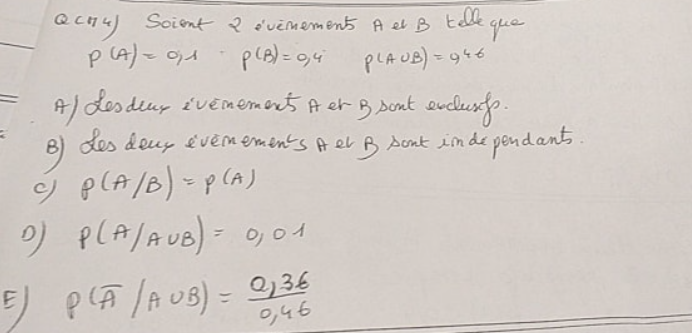 QCM 4) Soient 2 évènements A et B telle que
p(A) = 0,1 p(B) = 0,4 p(A∪B) = 0,46
A) Les deux évènements A et B sont exclusifs.
B) Les deux évènements A et B sont indépendants.
C) p(A/B) = p(A)
D) p(A/A∪B) = 0,01
E) p(Ā/A∪B) = 0,36/0,46